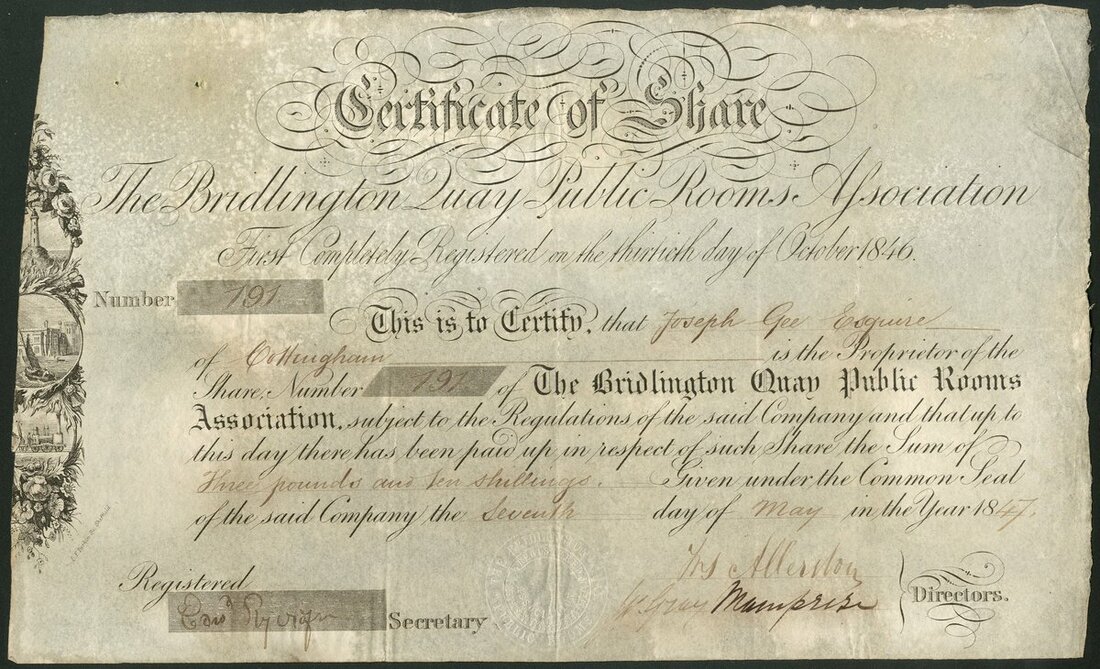 Certificate of Share
The Bridlington Quay Public Rooms Association
First Completely Registered on the thirtieth day of October 1846.
Number 191
This is to Certify, that Joseph Gee Esquire
of Cottingham is the Proprietor of the
Share, Number 191 of The Bridlington Quay Public Rooms
Association, subject to the Regulations of the said Company and that up to
this day there has been paid up in respect of such Share the Sum of
Three pounds and ten shillings. Given under the Common Seal
of the said Company the Seventh day of May in the Year 1847.
Registered
Secretary
Directors.